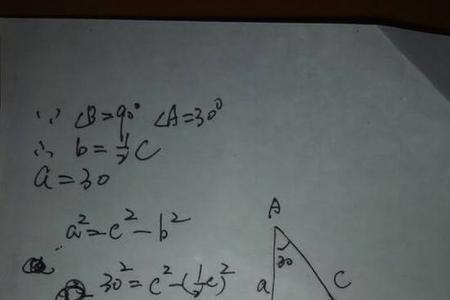 ∵ ∠B=90° ∠A=30°
∴ b=½C
a=30
a²=c²-b²
30²=c²-(½c)²
A
30
a
C